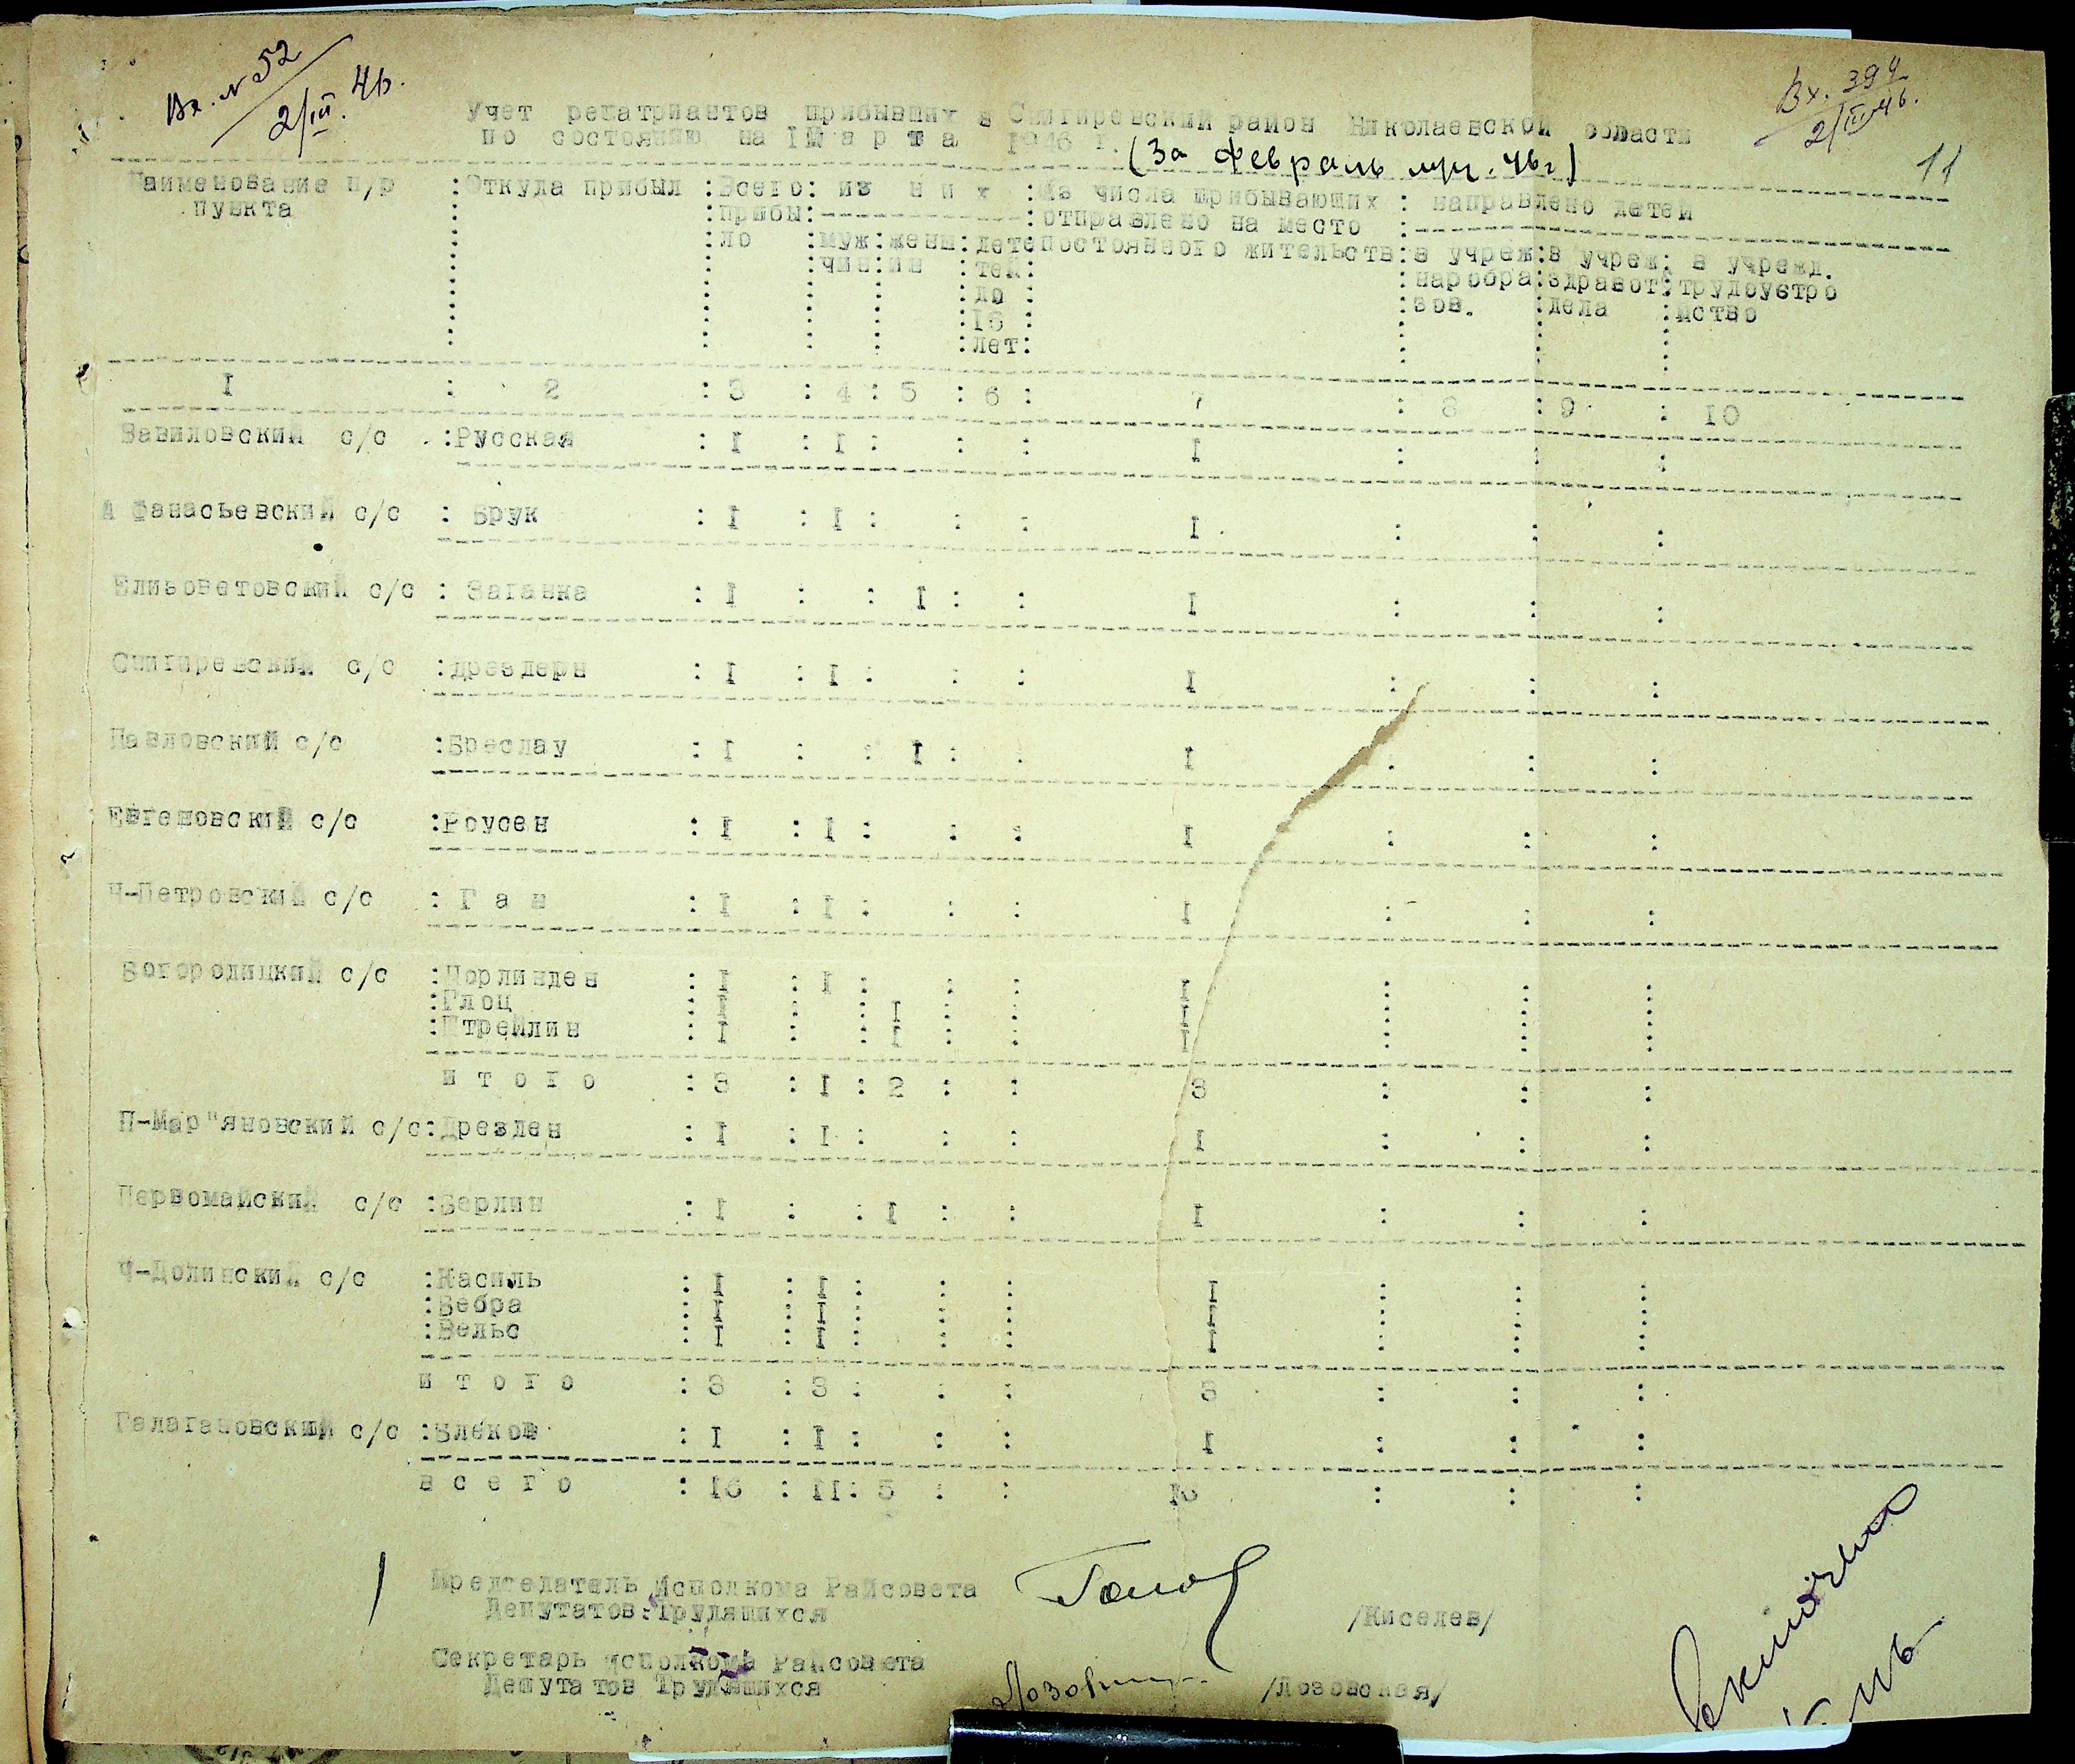 Вх. № 52
2/III. 46.
Вх. 394
2/III 46.
11
Учет репатриантов прибывших в Снигиревский район Николаевской области
по состоянию на I М а р т а 1946 г.
(За февраль м-ц. 46г)
Наименование н/р пункта : Откуда прибыл : Всего прибыло : из них : Из числа прибывающих отправлено на место постоянного жительств : направлено детей
мужчин : женщин : дететей до 16 лет : в учреж наробразов. : в учреж здравотдела : в учрежд. трудоустройство
I : 2 : 3 : 4 : 5 : 6 : 7 : 8 : 9 : 10
Вавиловский с/с :Русская : I : I : : : I : : :
А фанасьевский с/с : Брук : I : I : : : I : : :
Елизоветовский с/с : Заганка : I : : I : : I : : :
Снигиревский с/с :Дрездерн : I : I : : : I : : :
Павловский с/с :Бреслау : I : : I : : I : : :
Евгеновский с/с :Роусен : I : I : : : I : : :
Ч-Петровский с/с : Г а н : I : I : : : I : : :
Богородицкий с/с :Норлинден : I : I : : : I : : :
:Глоц : I : : I : : I : : :
:Штрейлин : I : : I : : I : : :
и т о г о : 3 : I : 2 : : 3 : : :
П-Мар"яновский с/с:Дрезден : I : I : : : I : : :
Первомайский с/с :Берлин : I : : I : : I : : :
Ч-Долинский с/с :Касиль : I : I : : : I : : :
:Зебра : I : I : : : I : : :
:Вельс : I : I : : : I : : :
и т о г о : 3 : 3 : : : 3 : : :
Галагановский с/с : I : I : : : I : : :
в с е г о : 16 : II: 5 : : 16 : : :
Председатель Исполкома Райсовета
Депутатов Трудящихся /Киселев/
Секретарь исполкома Райсовета
Депутатов Трудящихся /Лозовская/